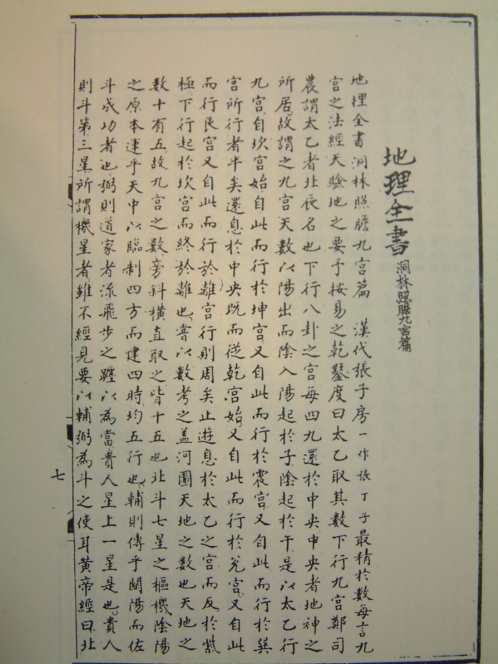 地理全書 洞林照膽九宮篇
地理全書洞林照膽九宮篇 漢代張子房一作張丁子最精於數每言九
宮之法經天驗地之要予按易之乾鑿度曰太乙取其數下行九宮鄭司
農謂太乙者北辰名也下行八卦之宮每四九還於中央中央者地神之
所居故謂之九宮天數以陽出而陰入陽起於子陰起於午是以太乙行
九宮自坎宮始自此而行於坤宮又自此而行於震宮又自此而行於巽
宮所行者半矣還息於中央既而從乾宮始又自此而行於兌宮又自此
而行艮宮又自此而行於離宮行則周矣止遊息於太乙之宮而反於紫
極下行起於坎宮而終於離也嘗以數考之蓋河圖天地之數也天地之
數十有五故九宮之數旁斜橫直取之皆十五也北斗七星之樞機陰陽
之原本運乎天中以臨制四方而建四時均五行也輔則傳乎開陽而佐
斗成功者也弼則道家者流飛步之躔以為當貴人星上一星是也貴人
則斗第三星所謂機星者雖不經見要以輔弼為斗之使耳黃帝經曰北
七